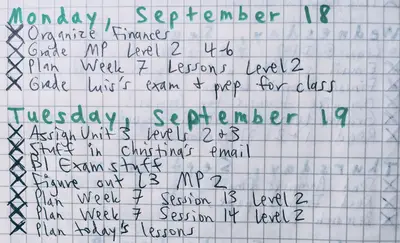 Monday, September 18
Organize Finances
Grade MP Level 2 4-6
Plan Week 7 Lessons Level 2
Grade Luis's exam + prep for class
Tuesday, September 19
Assign Unit 3 Levels 2+3
Stuff in Christina's email
B1 Exam Stuff
Figure out L3 MP 2
Plan Week 7 Session 13 Level 2
Plan Week 7 Session 14 Level 2
Plan today's lessons